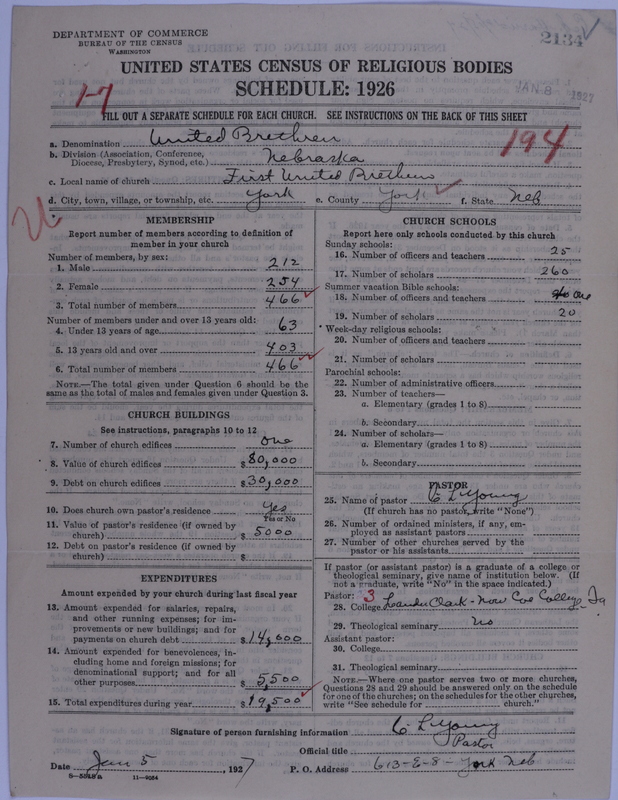 DEPARTMENT OF COMMERCE
BUREAU OF THE CENSUS
WASHINGTON
2134
UNITED STATES CENSUS OF RELIGIOUS BODIES
SCHEDULE: 1926
JAN 8 1927
1-7
FILL OUT A SEPARATE SCHEDULE FOR EACH CHURCH. SEE INSTRUCTIONS ON THE BACK OF THIS SHEET
194
a. Denomination United Brethren
b. Division (Association, Conference, Diocese, Presbytery, Synod, etc.) Nebraska
c. Local name of church First United Brethern
d. City, town, village, or township, etc. York e. County York f. State Neb
MEMBERSHIP
Report number of members according to definition of
member in your church
Number of members, by sex:
1. Male 212
2. Female 254
3. Total number of members 466
Number of members under and over 13 years old:
4. Under 13 years of age 63
5. 13 years old and over 403
6. Total number of members 466
NOTE.—The total given under Question 6 should be the
same as the total of males and females given under Question 3.
CHURCH BUILDINGS
See instructions, paragraphs 10 to 12
7. Number of church edifices One
8. Value of church edifices $80,000
9. Debt on church edifices $30,000
10. Does church own pastor's residence Yes
Yes or No
11. Value of pastor's residence (if owned by
church) $ 5000
12. Debt on pastor's residence (if owned by
church) $
EXPENDITURES
Amount expended by your church during last fiscal year
13. Amount expended for salaries, repairs,
and other running expenses; for im-
provements or new buildings; and for
payments on church debt $14,000
14. Amount expended for benevolences, in-
cluding home and foreign missions; for
denominational support; and for all
other purposes $5,500
15. Total expenditures during year $19,500
CHURCH SCHOOLS
Report here only schools conducted by this church
Sunday schools:
16. Number of officers and teachers 25
17. Number of scholars 260
Summer vacation Bible schools:
18. Number of officers and teachers one
19. Number of scholars 20
Week-day religious schools:
20. Number of officers and teachers
21. Number of scholars
Parochial schools:
22. Number of administrative officers
23. Number of teachers—
a. Elementary (grades 1 to 8)
b. Secondary
24. Number of scholars—
a. Elementary (grades 1 to 8)
b. Secondary
PASTOR
25. Name of pastor C L Young
(If church has no pastor, write "None")
26. Number of ordained ministers, if any, em-
ployed as assistant pastors
27. Number of other churches served by the
pastor or his assistants
If pastor (or assistant pastor) is a graduate of a college or
theological seminary, give name of institution below. (If
not a graduate, write "No" in the space indicated.)
Pastor: 3
28. College Leander Clark - Now Coe College Ia
29. Theological seminary No
Assistant pastor:
30. College
31. Theological seminary
NOTE.—Where one pastor serves two or more churches,
Questions 28 and 29 should be answered only on the schedule
for one of the churches; on the schedules for the other churches,
write "See schedule for church."
Signature of person furnishing information C L Young
Official title Pastor
Date Jan 5, 1927 P. O. Address 613-E-8- York Neb
11—9034